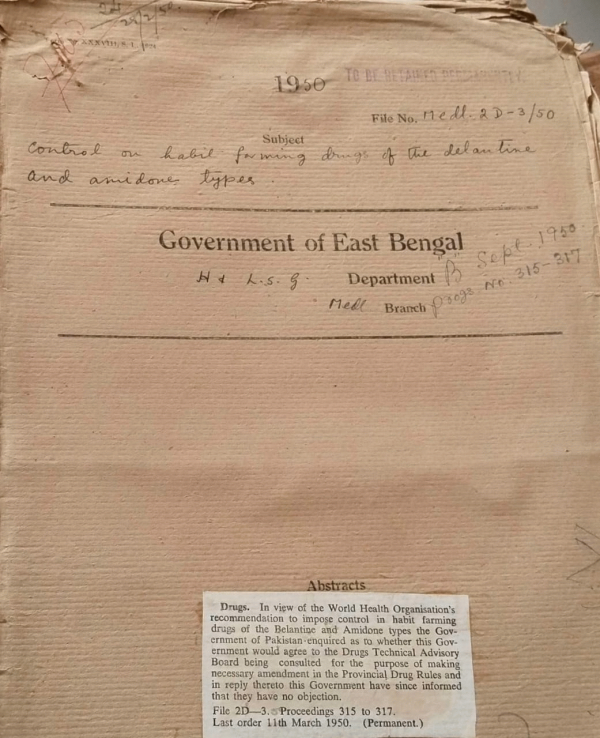 25/2/50
XXXVIII, S. I., P/1
1950 TO BE RETAINED PERMANENTLY.
File No. Medl. 2D-3/50
Subject
Control on habit forming drugs of the delantine
and amidone types
Government of East Bengal
H & L.S.G. Department "B" Sept. 1950
Medl Branch Progs No. 315-317
Abstracts
Drugs. In view of the World Health Organisation's
recommendation to impose control in habit farming
drugs of the Belantine and Amidone types the Gov-
ernment of Pakistan enquired as to whether this Gov-
ernment would agree to the Drugs Technical Advisory
Board being consulted for the purpose of making
necessary amendment in the Provincial Drug Rules and
in reply thereto this Government have since informed
that they have no objection.
File 2D—3. Proceedings 315 to 317.
Last order 11th March 1950. (Permanent.)